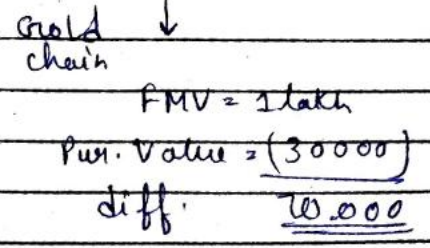 Gold ↓
chain
FMV = 1 lakh
Pur. Value = (30000)
diff. 70.000